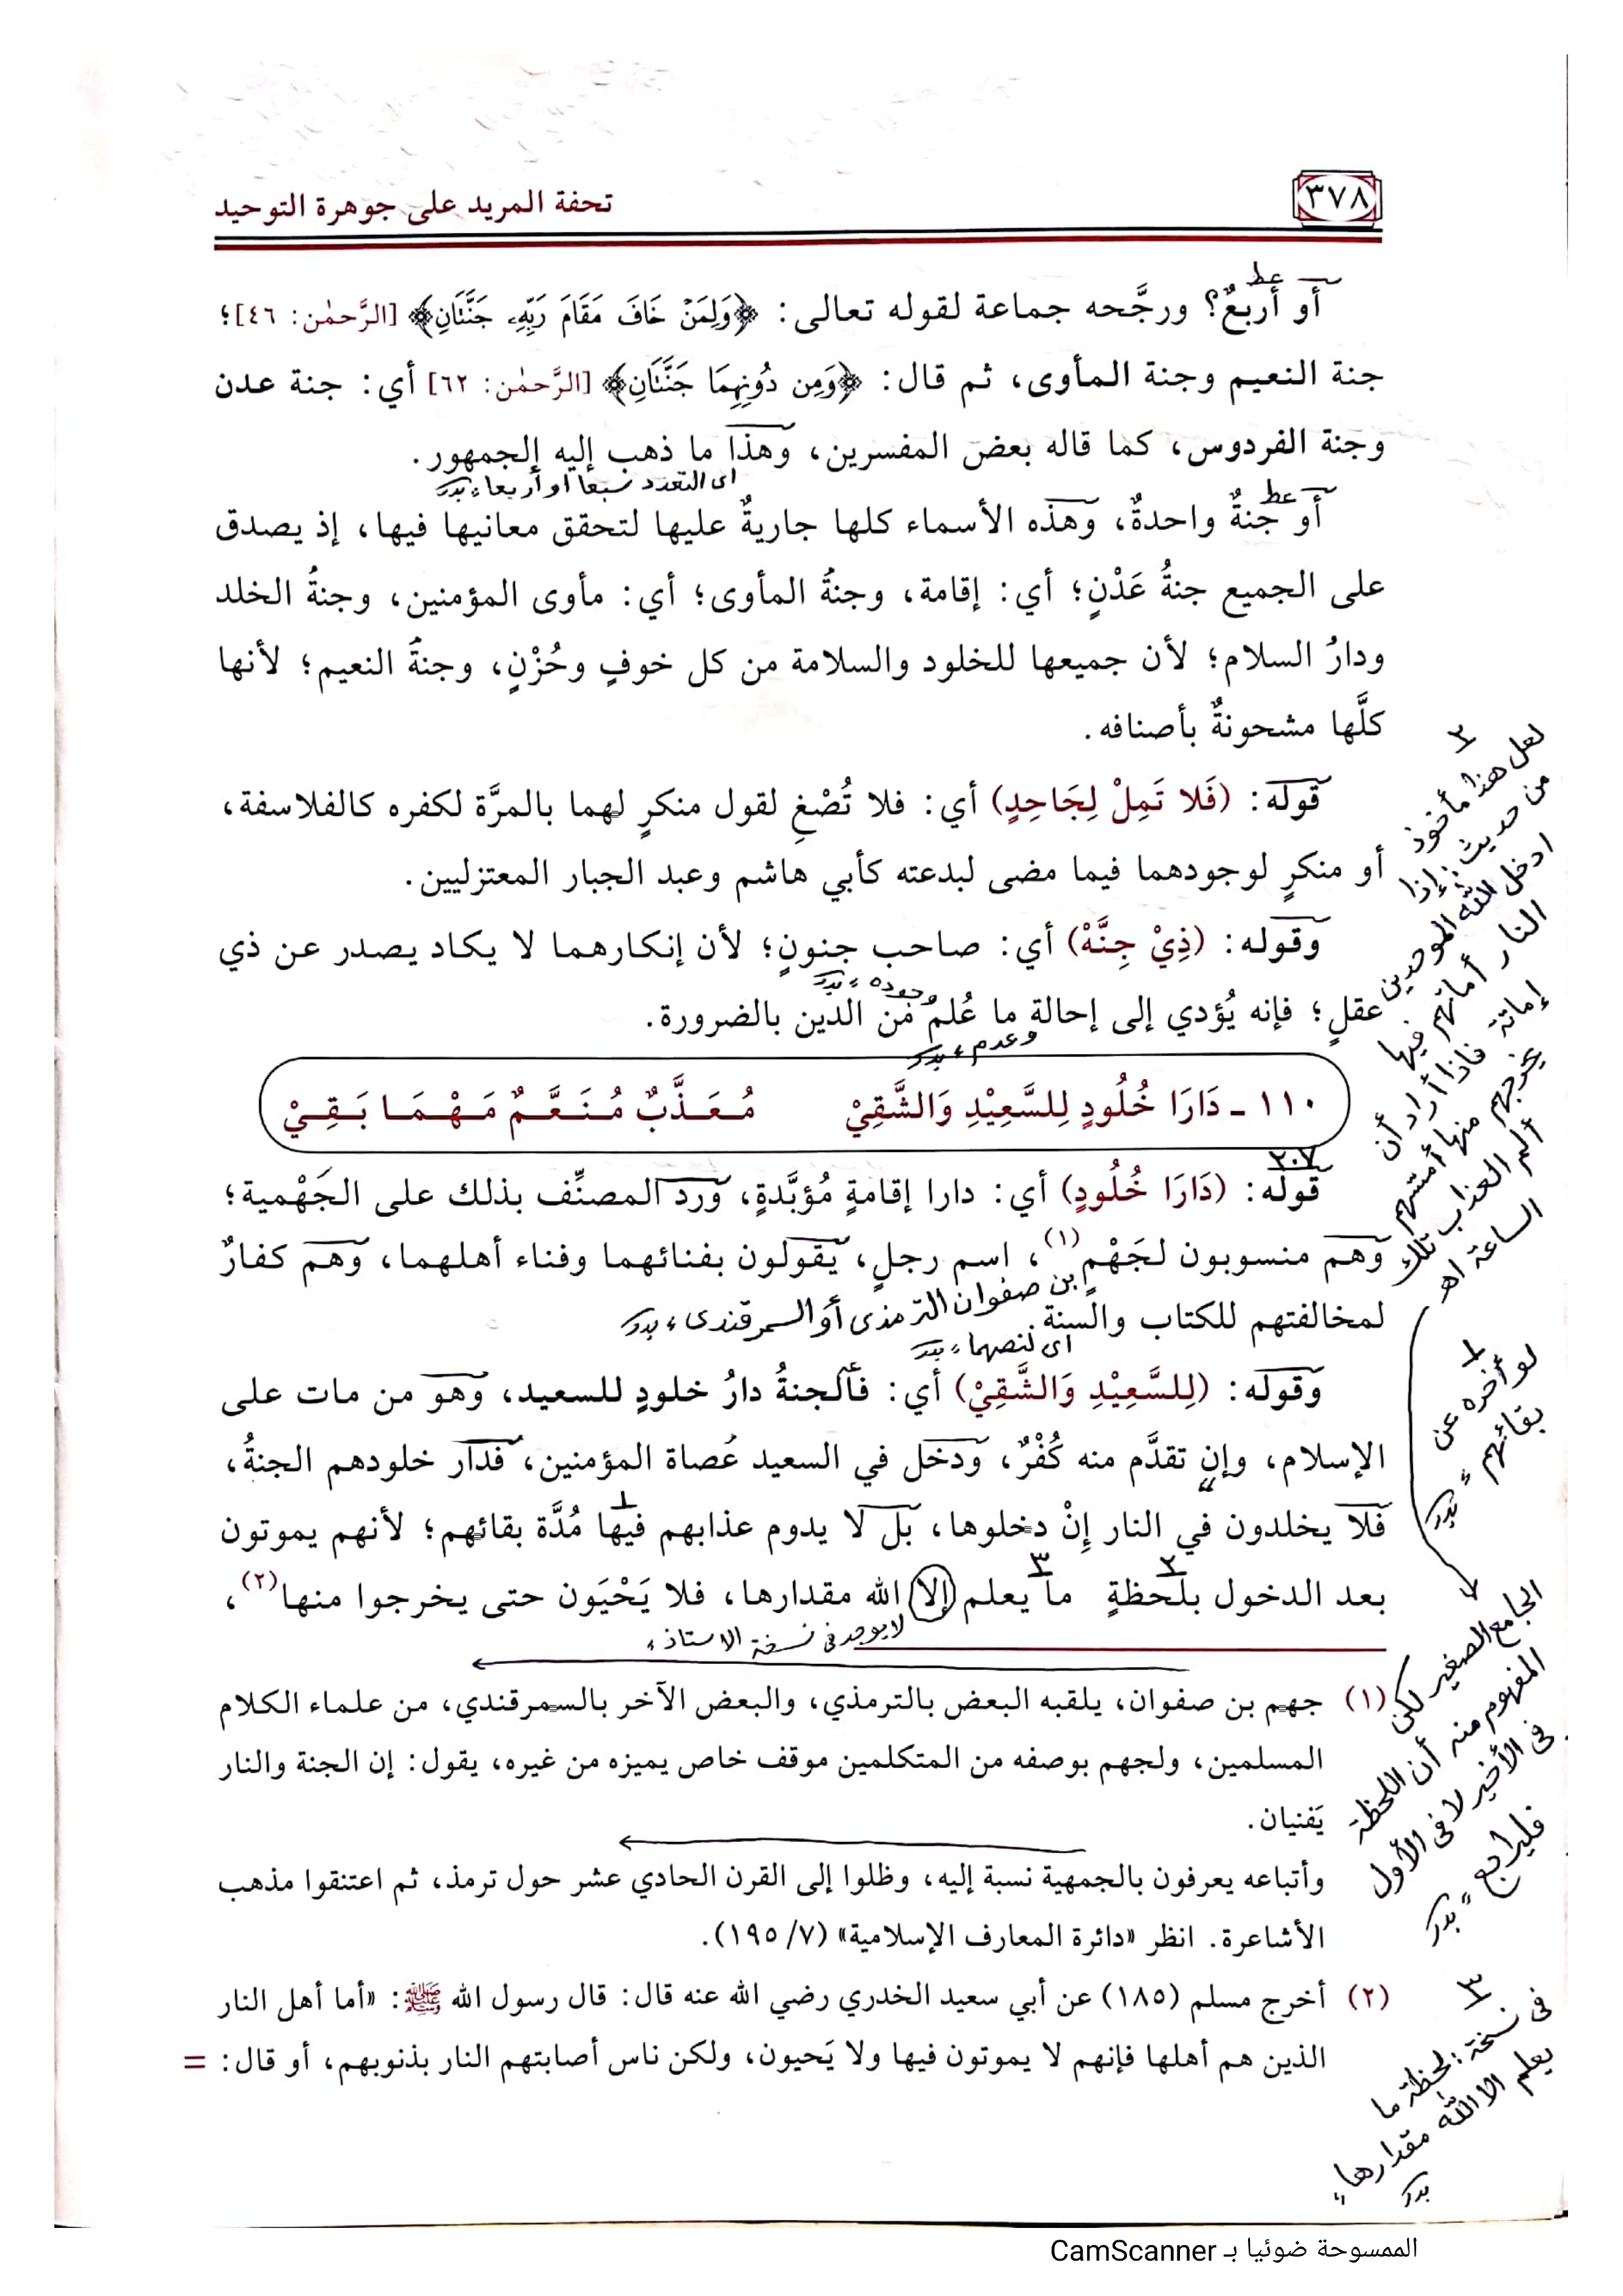 ٣٧٨
تحفة المريد على جوهرة التوحيد
عط
أو أربعٌ؟ ورجَّحه جماعة لقوله تعالى: ﴿وَلِمَنْ خَافَ مَقَامَ رَبِّهِۦ جَنَّتَانِ﴾ [الرَّحمٰن: ٤٦]؛
جنة النعيم وجنة المأوى، ثم قال: ﴿وَمِن دُونِهِمَا جَنَّتَانِ﴾ [الرَّحمٰن: ٦٢] أي: جنة عدن
وجنة الفردوس، كما قاله بعض المفسرين، وهذا ما ذهب إليه الجمهور.
اى التعدد سبعا او أربعا، بدر
عط
أو جنةٌ واحدةٌ، وهذه الأسماء كلها جاريةٌ عليها لتحقق معانيها فيها، إذ يصدق
على الجميع جنةُ عَدْنٍ؛ أي: إقامة، وجنةُ المأوى؛ أي: مأوى المؤمنين، وجنةُ الخلد
ودارُ السلام؛ لأن جميعها للخلود والسلامة من كل خوفٍ وحُزْنٍ، وجنةُ النعيم؛ لأنها
كلَّها مشحونةٌ بأصنافه.
قوله: (فَلا تَمِلْ لِجَاحِدٍ) أي: فلا تُصْغِ لقول منكرٍ لهما بالمرَّة لكفره كالفلاسفة،
أو منكرٍ لوجودهما فيما مضى لبدعته كأبي هاشم وعبد الجبار المعتزليين.
وقوله: (ذِيْ جِنَّهْ) أي: صاحب جنونٍ؛ لأن إنكارهما لا يكاد يصدر عن ذي
وجوده، بدر
عقلٍ؛ فإنه يُؤدي إلى إحالة ما عُلم من الدين بالضرورة.
وعدم، بدر
١١٠ ـ دَارَا خُلُودٍ لِلسَّعِيْدِ وَالشَّقِيْ مُعَذَّبٌ مُنَعَّمٌ مَهْمَا بَقِيْ
٢٠٧
قوله: (دَارَا خُلُودٍ) أي: دارا إقامةٍ مُؤبَّدةٍ، ورد المصنِّف بذلك على الجَهْمية؛
وهم منسوبون لجَهْمٍ(١)، اسم رجلٍ، يقولون بفنائهما وفناء أهلهما، وهم كفارٌ
بن صفوان الترمذى أو السمرقندى، بدر
لمخالفتهم للكتاب والسنة.
اى لنصهما، بدر
وقوله: (لِلسَّعِيْدِ وَالشَّقِيْ) أي: فالجنةُ دارُ خلودٍ للسعيد، وهو من مات على
الإسلام، وإن تقدَّم منه كُفْرٌ، ودخل في السعيد عُصاة المؤمنين، فدار خلودهم الجنةُ،
فلا يخلدون في النار إِنْ دخلوها، بل لا يدوم عذابهم فيها مُدَّة بقائهم؛ لأنهم يموتون
بعد الدخول بلحظةٍ ما يعلم إلا الله مقدارها، فلا يَحْيَون حتى يخرجوا منها(٢)،
لا يوجد فى نسخة الاستاذ،
(١) جهم بن صفوان، يلقبه البعض بالترمذي، والبعض الآخر بالسمرقندي، من علماء الكلام
المسلمين، ولجهم بوصفه من المتكلمين موقف خاص يميزه من غيره، يقول: إن الجنة والنار
يَفنيان.
وأتباعه يعرفون بالجمهية نسبة إليه، وظلوا إلى القرن الحادي عشر حول ترمذ، ثم اعتنقوا مذهب
الأشاعرة. انظر «دائرة المعارف الإسلامية» (٧/ ١٩٥).
(٢) أخرج مسلم (١٨٥) عن أبي سعيد الخدري رضي الله عنه قال: قال رسول الله ﷺ: «أما أهل النار
الذين هم أهلها فإنهم لا يموتون فيها ولا يَحيون، ولكن ناس أصابتهم النار بذنوبهم، أو قال: =
٢
لعل هذا مأخوذ
من حديث: إذا
ادخل الله الموحدين
النار أماتهم فيها
إماتة فاذا أراد أن
يخرجهم منها أمسّهم
ألم العذاب تلك
الساعة اهـ
١
لو أخره عن
بقائهم، بدر
الجامع الصغير لكن
المفهوم منه أن اللحظة
فى الأخير لا فى الأول
فليراجع، بدر
٣
فى نسخة: لحظة ما
يعلم الا الله مقدارها،
بدر
الممسوحة ضوئيا بـ CamScanner